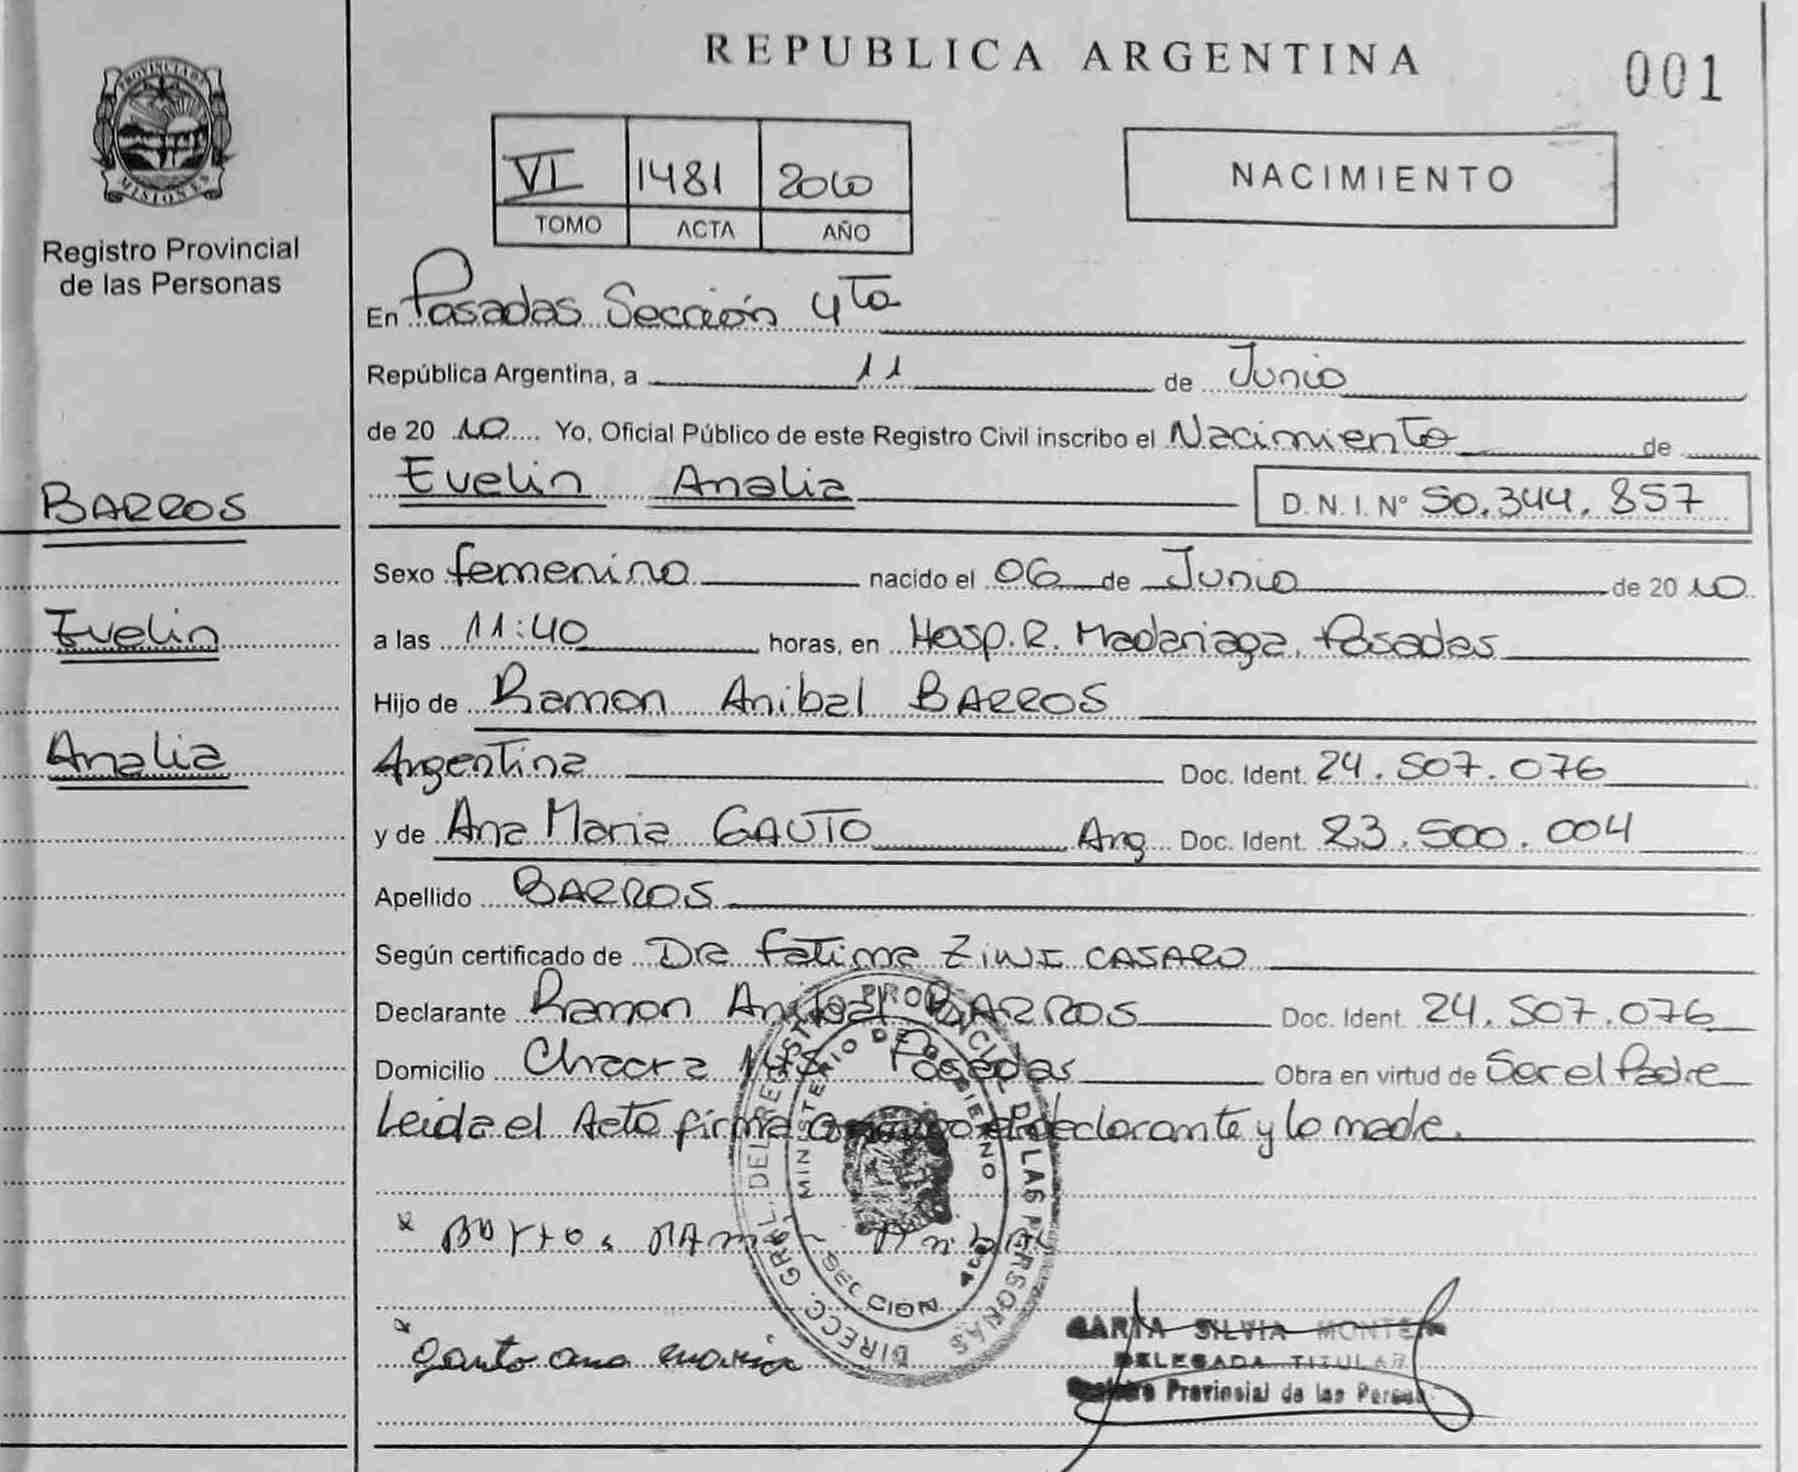 REPUBLICA ARGENTINA
001
PROVINCIA DE
MISIONES
Registro Provincial
de las Personas
VI 1481 2010
TOMO ACTA AÑO
NACIMIENTO
En Posadas Sección 4ta
República Argentina, a 11 de Junio
de 20 10 Yo, Oficial Público de este Registro Civil inscribo el Nacimiento de
BARROS
Evelin Analia D.N.I. Nº 50.344.857
Sexo femenino nacido el 06 de Junio de 20 10
Evelin
a las 11:40 horas, en Hosp. R. Madariaga, Posadas
Hijo de Ramon Anibal BARROS
Analia
Argentina Doc. Ident. 24.507.076
y de Ana Maria GAUTO Arg Doc. Ident. 23.500.004
Apellido BARROS
Según certificado de Dra Fatima CASARO
Declarante Ramon Anibal BARROS Doc. Ident. 24.507.076
Domicilio Chacra Posadas Obra en virtud de Ser el Padre
Leida el Acta firma el declarante y la madre.
Anibal
gauto ana maria
DIRECC. GRAL. DEL REGIST. PROVINCIAL DE LAS PERSONAS
MINISTERIO DE GOBIERNO
SILVIA
DELEGADA TITULAR
Provincial de las